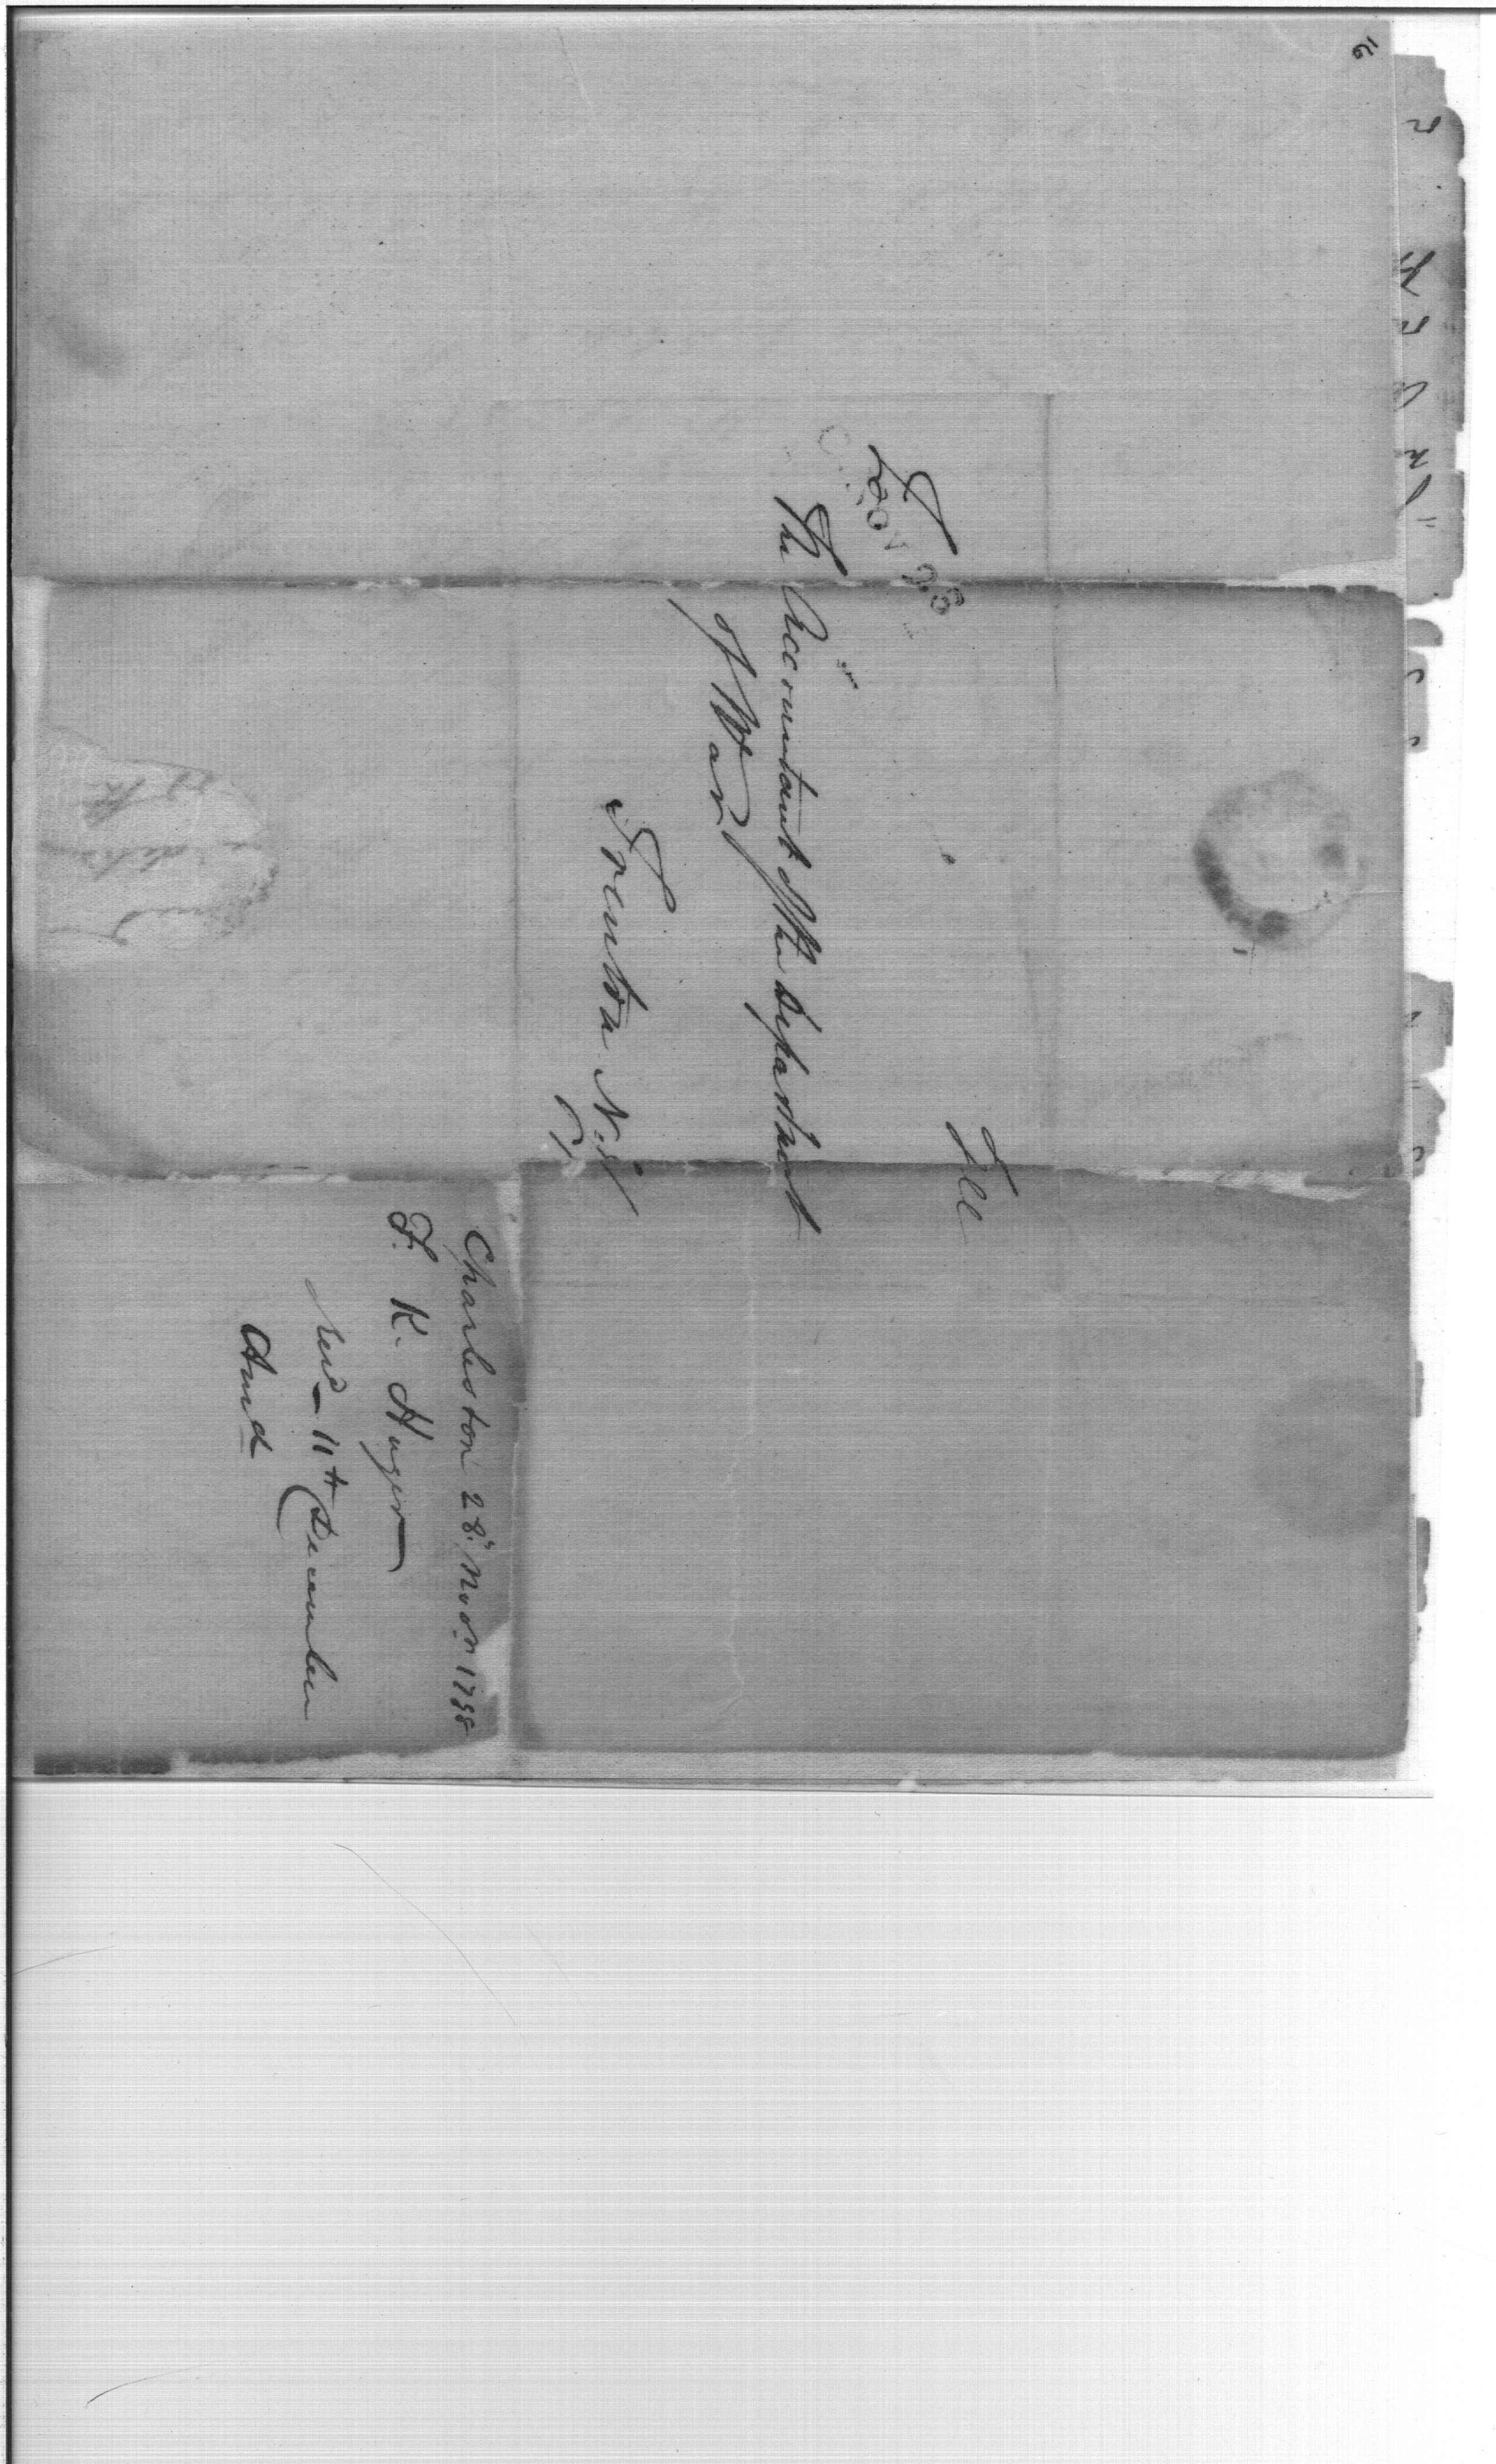 Free
To
NOV 28
The Accountant of the Departmt
of War
Trenton N.J.
Charleston 28th Novr. 1798
F. K. Huger
Recd. 11th December
Ansd